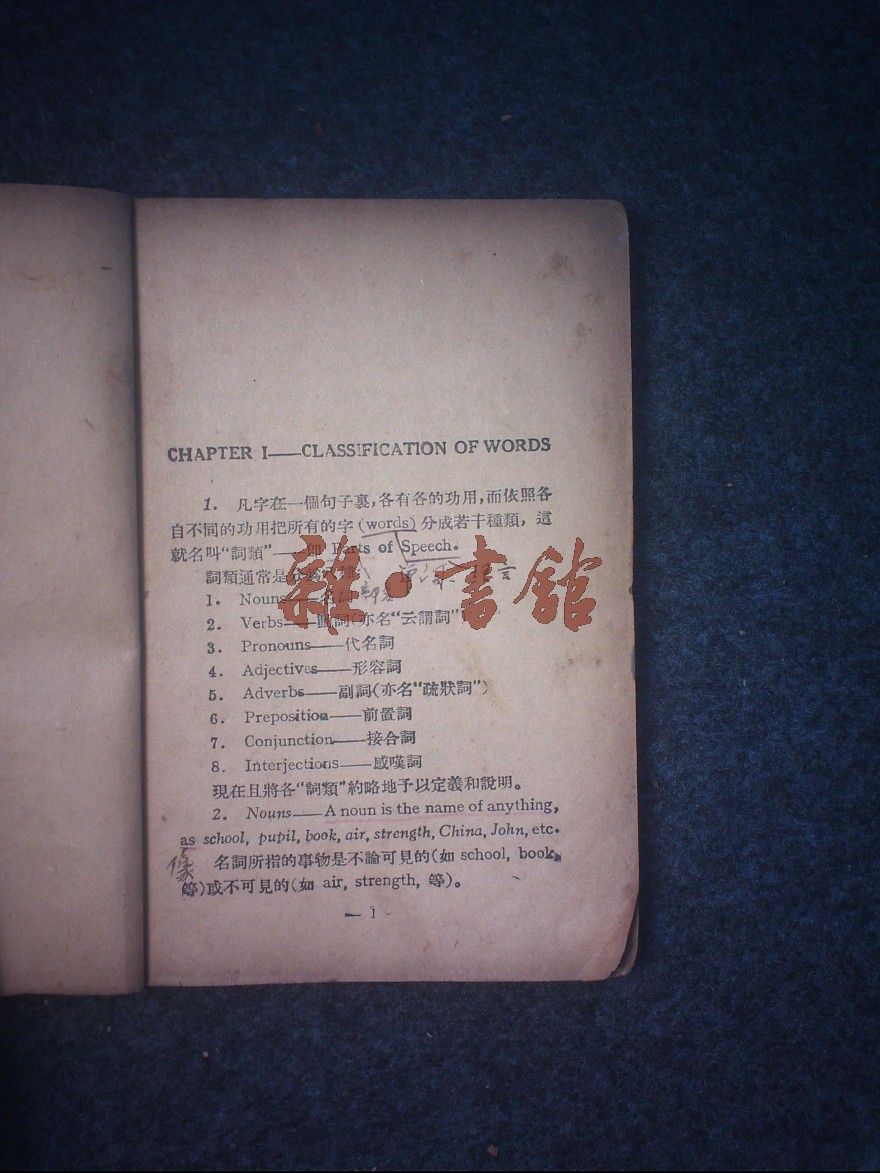 CHAPTER I——CLASSIFICATION OF WORDS
1. 凡字在一個句子裏,各有各的功用,而依照各
自不同的功用把所有的字(words)分成若干種類,這
就名叫"詞類"——即 Parts of Speech.
詞類通常是分爲
1. Nouns——名詞
2. Verbs——動詞(亦名"云謂詞"
3. Pronouns——代名詞
4. Adjectives——形容詞
5. Adverbs——副詞(亦名"疏狀詞")
6. Preposition——前置詞
7. Conjunction——接合詞
8. Interjections——感嘆詞
現在且將各"詞類"約略地予以定義和說明。
2. Nouns——A noun is the name of anything,
as school, pupil, book, air, strength, China, John, etc.
像
名詞所指的事物是不論可見的(如 school, book,
等)或不可見的(如 air, strength, 等)。
— 1
雜·書館